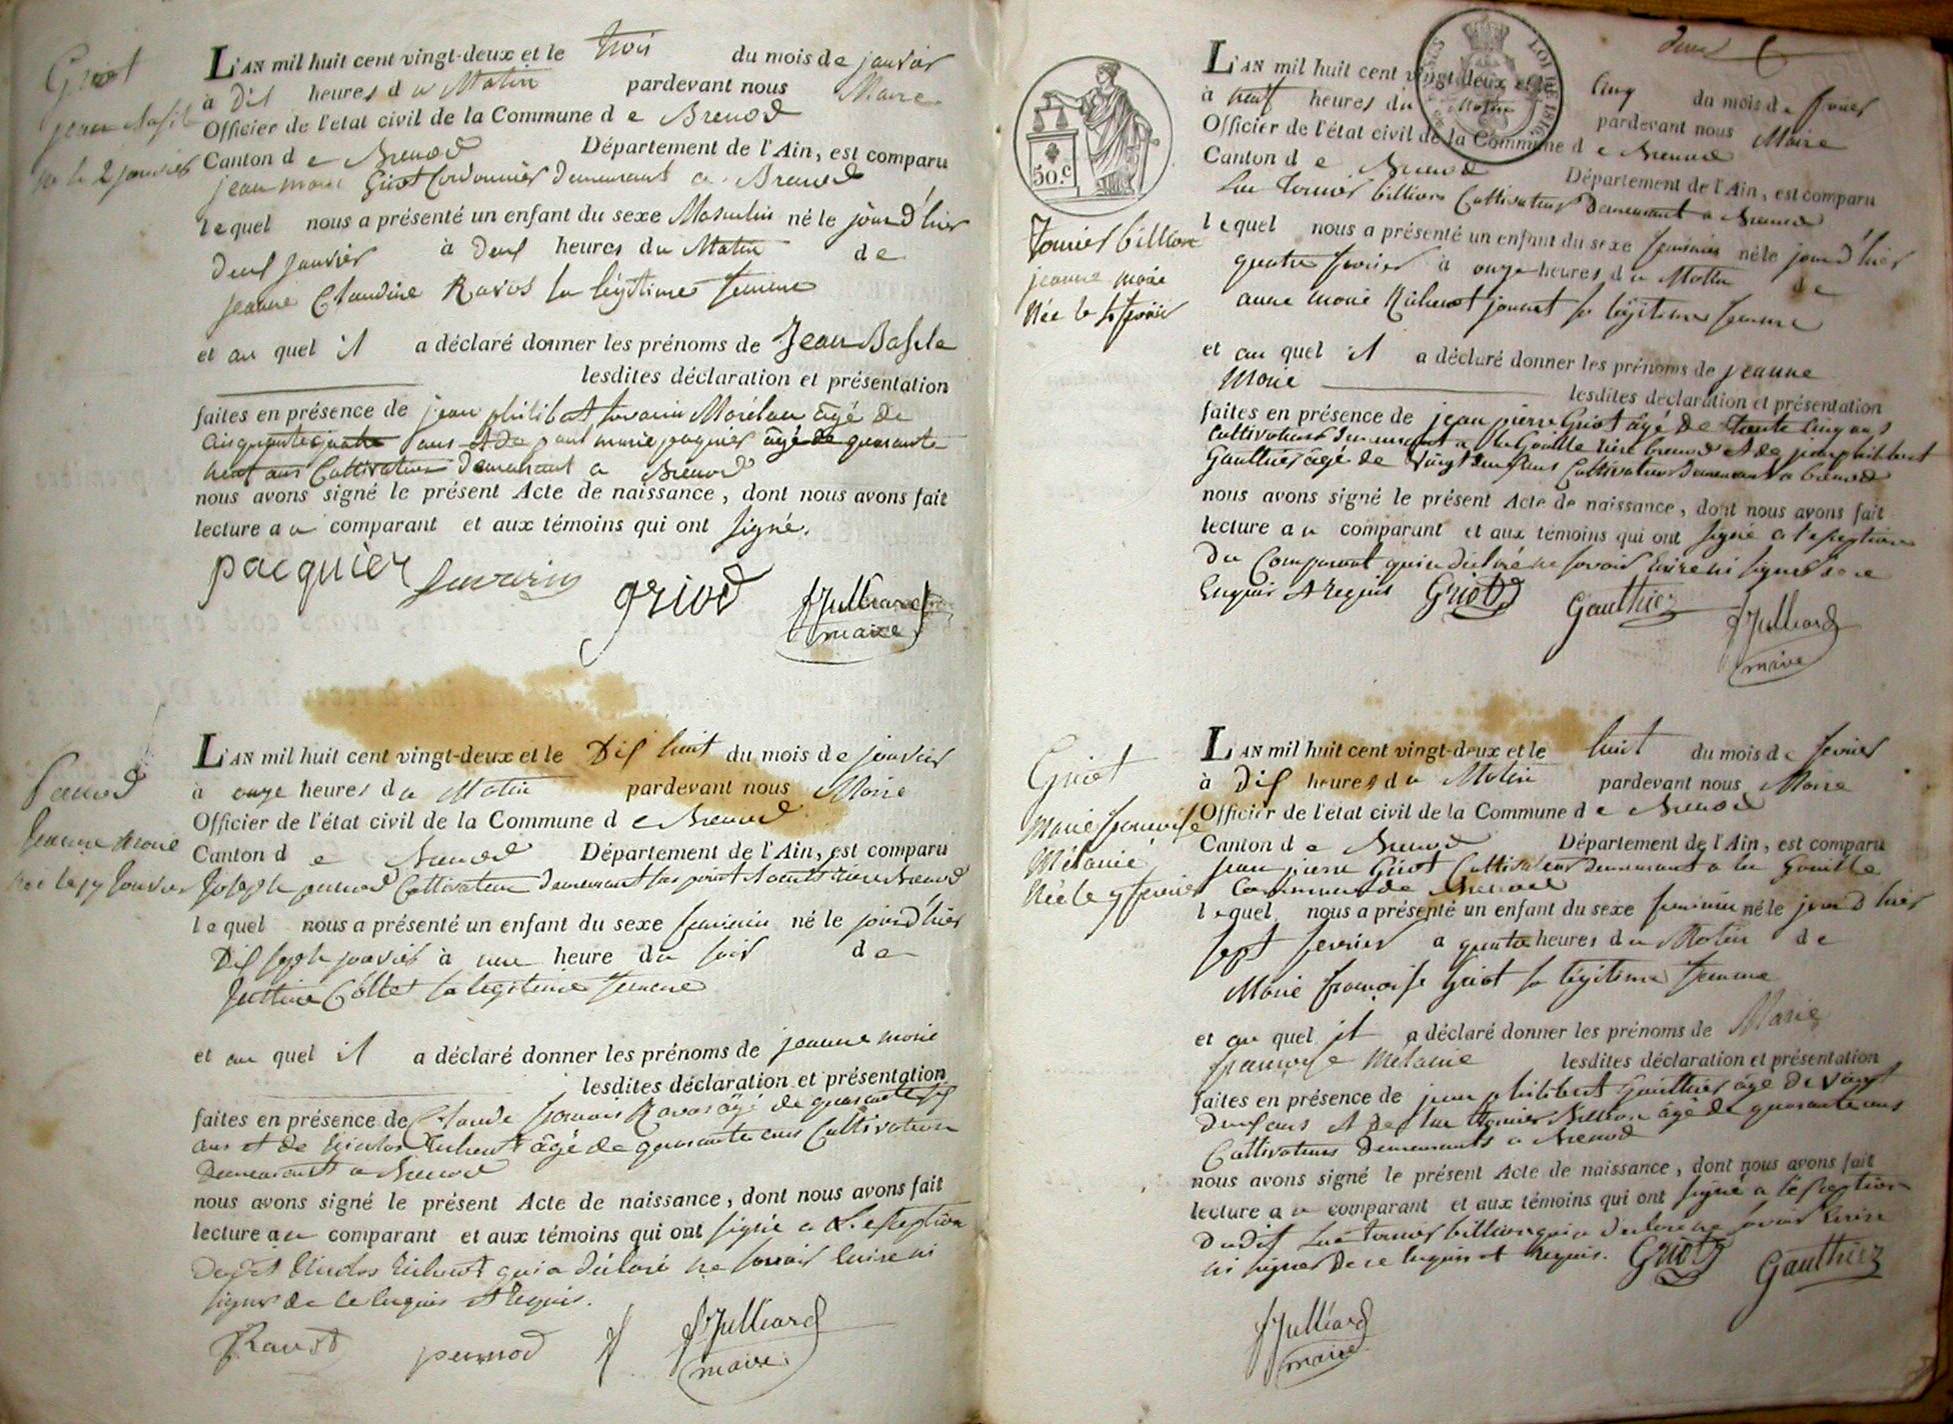 Griot
jean Basile
né le 2 janvier
L'AN mil huit cent vingt-deux et le trois du mois de janvier
à Dix heures du Matin pardevant nous Maire
Officier de l'état civil de la Commune de Brenod
Canton de Brenod Département de l'Ain, est comparu
jean marie Griot Cordonnier demeurant a Brenod
lequel nous a présenté un enfant du sexe Masculin né le jour d'hier
Deux janvier à Deux heures du Matin de
jeanne Claudine Ravos sa légitime femme
et au quel il a déclaré donner les prénoms de Jean Basile
lesdites déclaration et présentation
faites en présence de jean philibert Savarin Morélan âgé de
cinquante quatre ans et de paul marie pacquier âgé de quarante
neuf ans Cultivateurs demeurant a Brenod
nous avons signé le présent Acte de naissance, dont nous avons fait
lecture au comparant et aux témoins qui ont signé.
pacquier Savarin griod Julliard
maire
pernod
Jeanne Marie
née le 17 Janvier
L'AN mil huit cent vingt-deux et le Dix huit du mois de janvier
à onze heures du Matin pardevant nous Maire
Officier de l'état civil de la Commune de Brenod
Canton de Brenod Département de l'Ain, est comparu
Joseph pernod Cultivateur demeurant Brenod
lequel nous a présenté un enfant du sexe feminin né le jour d'hier
Dix sept janvier à une heure du soir de
Justine Collet sa légitime femme
et au quel il a déclaré donner les prénoms de jeanne marie
lesdites déclaration et présentation
faites en présence de Claude Ravos âgé de quarante six
ans et de Nicolas Richerot âgé de quarante ans Cultivateurs
Demeurants a Brenod
nous avons signé le présent Acte de naissance, dont nous avons fait
lecture au comparant et aux témoins qui ont signé a L'exception
Dudit Nicolas Richerot qui a déclaré ne savoir Ecrire ni
signer de ce Enquis et Requis.
Ravos pernod Julliard
maire
50.c
Tornier billion
jeanne marie
Née le 4 fevrier
L'AN mil huit cent vingt-deux et le Cinq du mois de fevrier
à neuf heures du Matin pardevant nous Maire
Officier de l'état civil de la Commune de Brenod
Canton de Brenod Département de l'Ain, est comparu
Luc Tornier billion Cultivateur Demeurant a Brenod
lequel nous a présenté un enfant du sexe feminin né le jour d'hier
quatre fevrier à onze heures du Matin de
anne marie Richerot jonnet sa légitime femme
et au quel il a déclaré donner les prénoms de jeanne
Marie lesdites déclaration et présentation
faites en présence de jean pierre Griot âgé de trente cinq ans
Cultivateur demeurant a la Gouille brenod et de jean philibert
Gauthier âgé de vingt deux ans Cultivateur demeurant a brenod
nous avons signé le présent Acte de naissance, dont nous avons fait
lecture au comparant et aux témoins qui ont signé a l'exception
du Comparant qui a déclaré ne savoir Ecrire ni signer de ce
Enquis et Requis Griot Gauthier Julliard
maire
Griot
Marie françoise
Mélanie
Née le 7 fevrier
L'AN mil huit cent vingt-deux et le huit du mois de fevrier
à Dix heures du Matin pardevant nous Maire
Officier de l'état civil de la Commune de Brenod
Canton de Brenod Département de l'Ain, est comparu
jean pierre Griot Cultivateur demeurant a la Gouille
Commune de Brenod
lequel nous a présenté un enfant du sexe feminin né le jour d'hier
sept fevrier a quatre heures du Matin de
Marie françoise Griot sa légitime femme
et au quel il a déclaré donner les prénoms de Marie
françoise Mélanie lesdites déclaration et présentation
faites en présence de jean philibert Gauthier âgé de vingt
deux ans et de Luc Tornier Billion âgé de quarante ans
Cultivateurs demeurants a Brenod
nous avons signé le présent Acte de naissance, dont nous avons fait
lecture au comparant et aux témoins qui ont signé a l'exception
dudit Luc Tornier billion qui a déclaré ne savoir Ecrire
ni signer De ce Enquis et Requis. Griot Gauthier
Julliard
maire